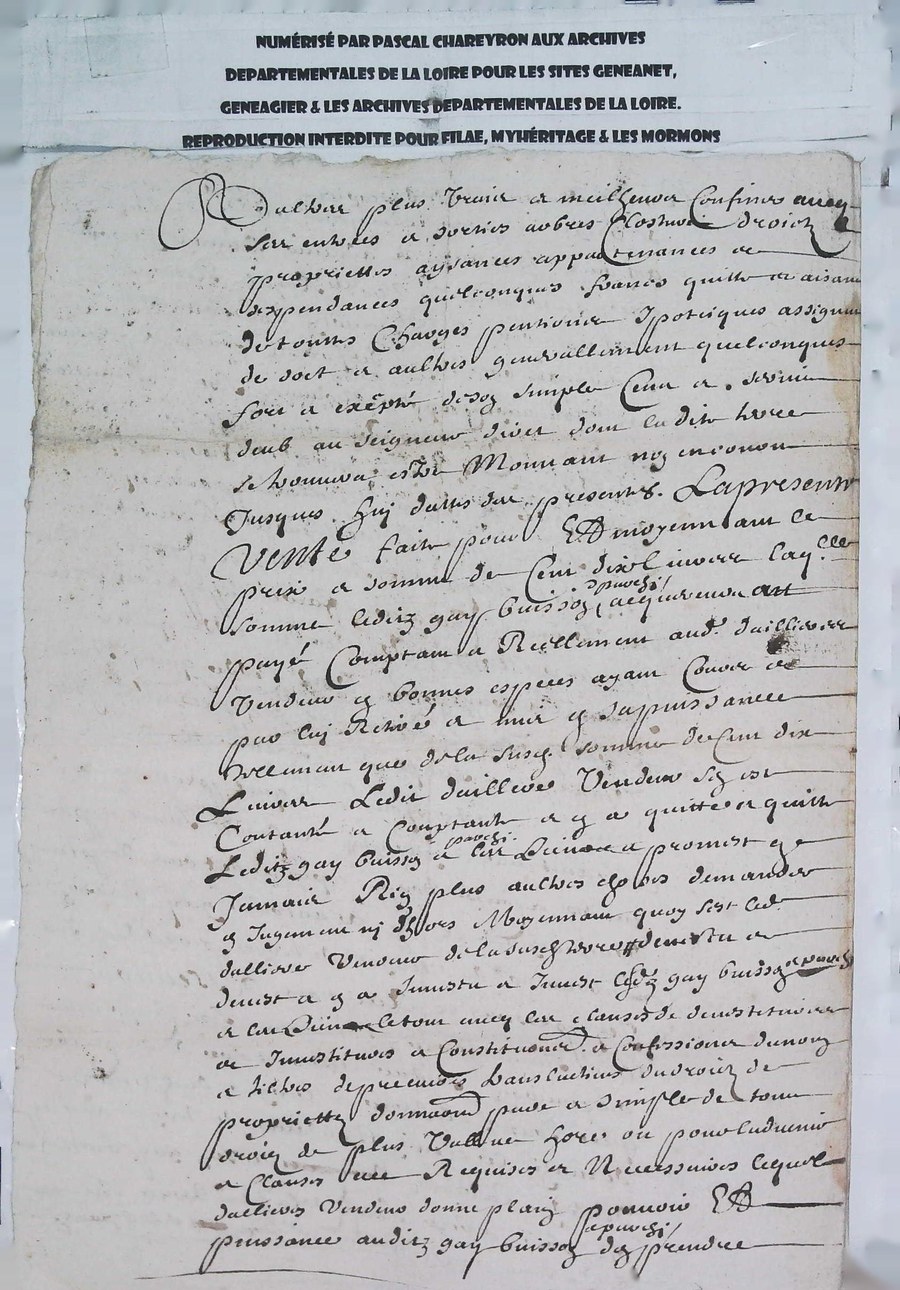 NUMÉRISÉ PAR PASCAL CHAREYRON AUX ARCHIVES
DEPARTEMENTALES DE LA LOIRE POUR LES SITES GENEANET,
GENEAGIER & LES ARCHIVES DEPARTEMENTALES DE LA LOIRE.
REPRODUCTION INTERDITE POUR FILAE, MYHÉRITAGE & LES MORMONS
aultres plus vrais et meilheurs confines avecq
ses entrees et sorties arbres droictz
proprietes aysances appartenances et
deppendances quelconques franco quitte et
de toutes charges pentions ipoteques
de doct et aultres generallement quelconques
fors et exepté de son simple cens et servis
deub au seigneur direct dont ladite terre
se trouvera estre mouvant non encouru
jusques huy datte des presentes. La presente
vente faite pour et moyennant le
prix et somme de cent dix livres laqlle
somme ledit gay buisson acquereur ant
payé comptant et reellement aud. dallieres
vendeur en bonnes especes ayant cours et
par luy retiré et mis en sa puissance
tellement que de la susd. somme de cent dix
livres ledit dallieres vendeur s'en est
contanté et comptante et en a quitté et quitte
ledit gay buisson et les siens et promest ne
jamais rien plus aultres choses demander
en jugement ny dehors moyennant quoy s'est led.
dallieres vendeur de la susd. terre devestu et
devest et en a investu et invest ledit gay buisson
et les siens le tout avecq les clauses de devestitures
et investitures et constitution et confession du nom
et tiltres de precaires translations du droict de
proprietté donnaon pure et simple de tout
droict de plus vallue hors ou pour ladvenir
et clauses requises et necessaires lequel
dallieres vendeur donne plain pouvoir et
puissance audit gay buisson den prendre